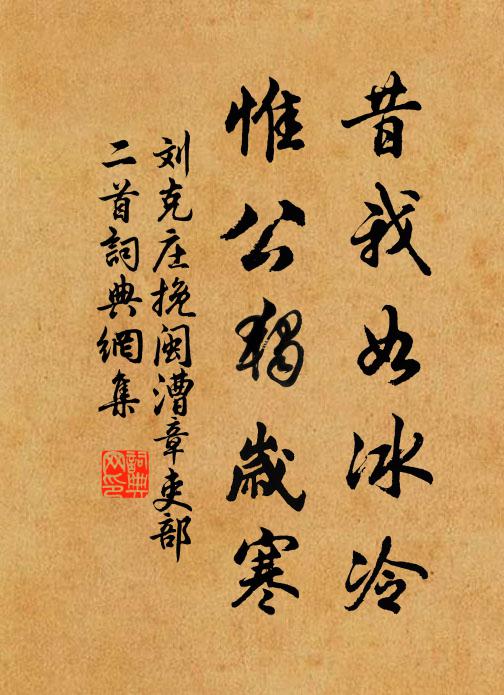 昔我如冰冷
惟公独歲寒
刘克庄挽闽漕章吏部
二首詞典網集
詞典網印